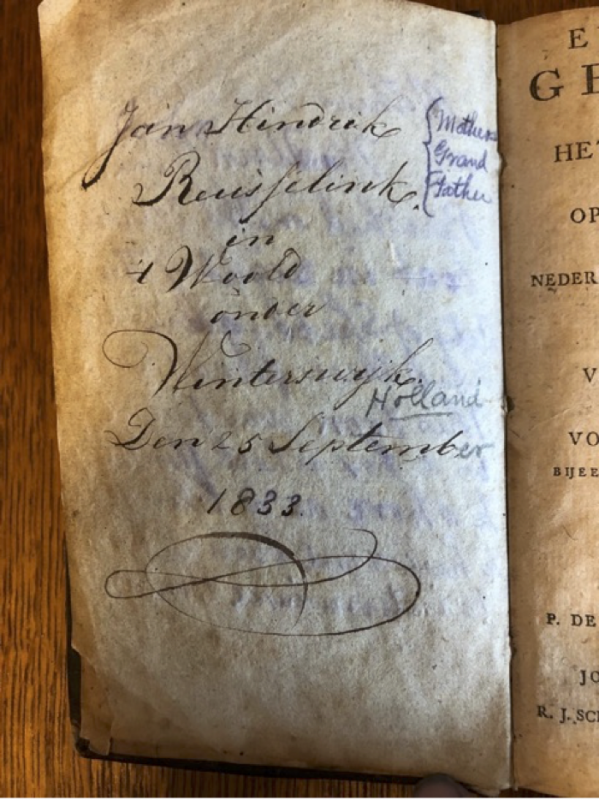 Jan Hindrik
Reusselink.
in
t Woold
onder
Winterswijk.
Holland
Den 25 September
1833.
Mothers
Grand
Father
E
GE
HET
OP
NEDER
V
VO
BIJEE
P. DE
JO
R. J. SC